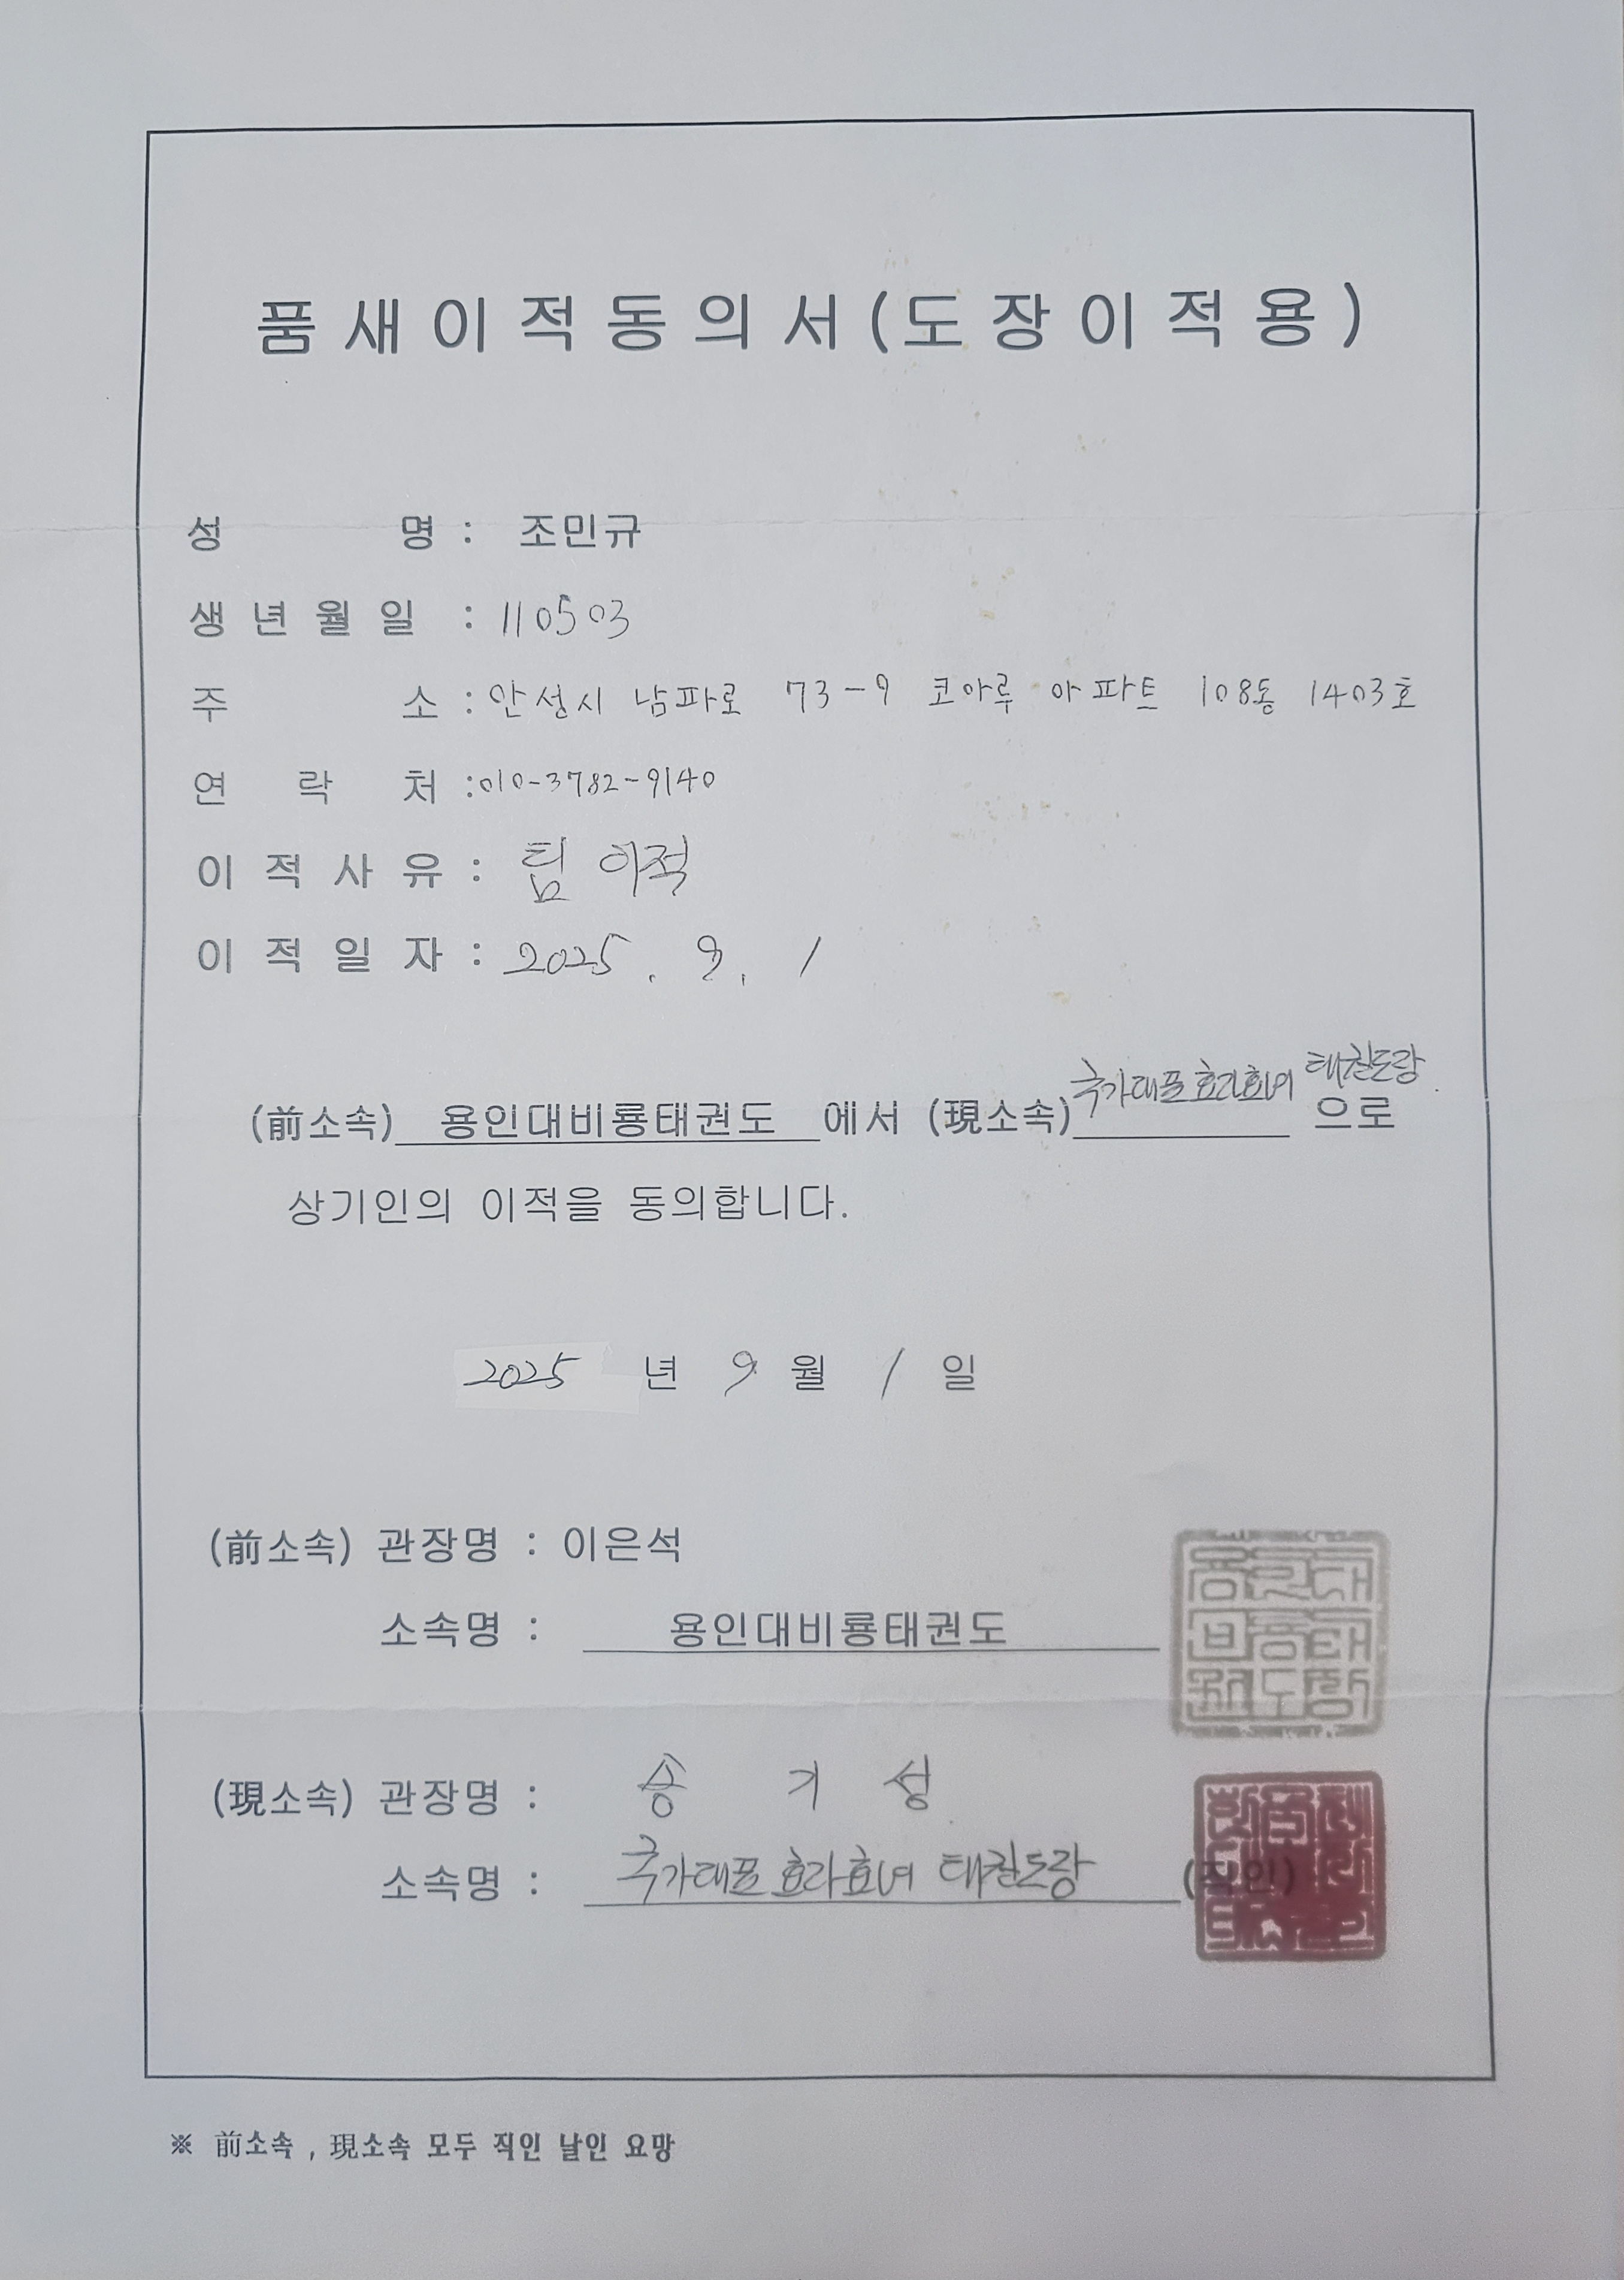 품새이적동의서(도장이적용)
성 명 : 조민규
생년월일 : 110503
주 소 : 안성시 남파로 73-9 코아루 아파트 108동 1403호
연 락 처 : 010-3782-9140
이적사유 : 팀 이적
이적일자 : 2025. 9. 1
(前소속) 용인대비룡태권도 에서 (現소속) 국가대표 효자효녀 태권도장 으로
상기인의 이적을 동의합니다.
2025 년 9 월 1 일
(前소속) 관장명 : 이은석
소속명 : 용인대비룡태권도
(現소속) 관장명 : 송기성
소속명 : 국가대표 효자효녀 태권도장 (직인)
※ 前소속 , 現소속 모두 직인 날인 요망